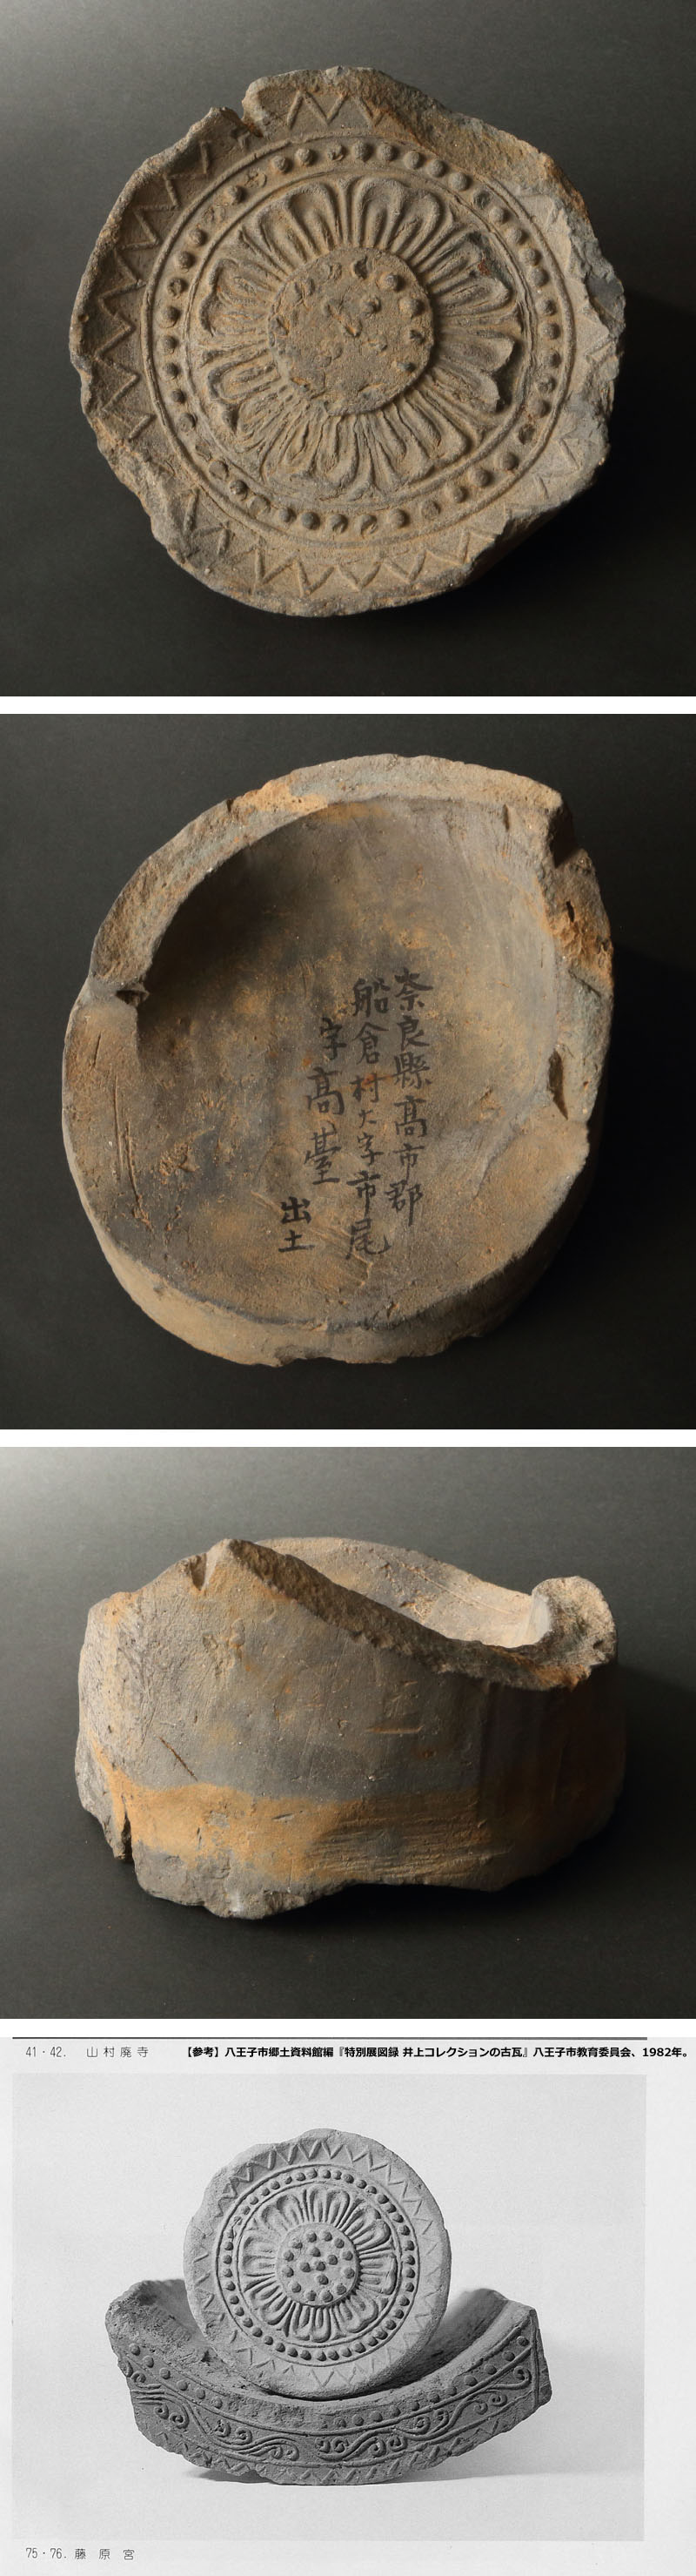 奈良縣高市郡
船倉村大字市尾
字高臺
出土
41・42. 山村廃寺
【参考】八王子市郷土資料館編『特別展図録 井上コレクションの古瓦』八王子市教育委員会、1982年。
75・76. 藤原宮